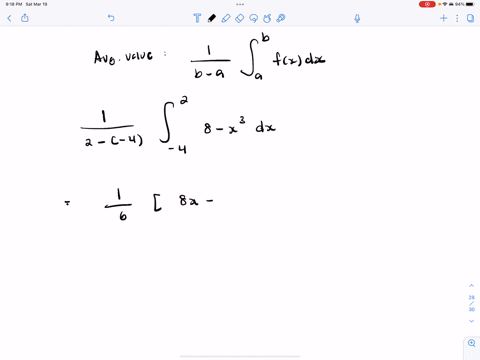 9:18 PM Sat Mar 19
94%
Avg. value : 1/(b-a) ∫_a^b f(x) dx
1/(2-(-4)) ∫_{-4}^2 8 - x^3 dx
= 1/6 [ 8x -
28
/
30